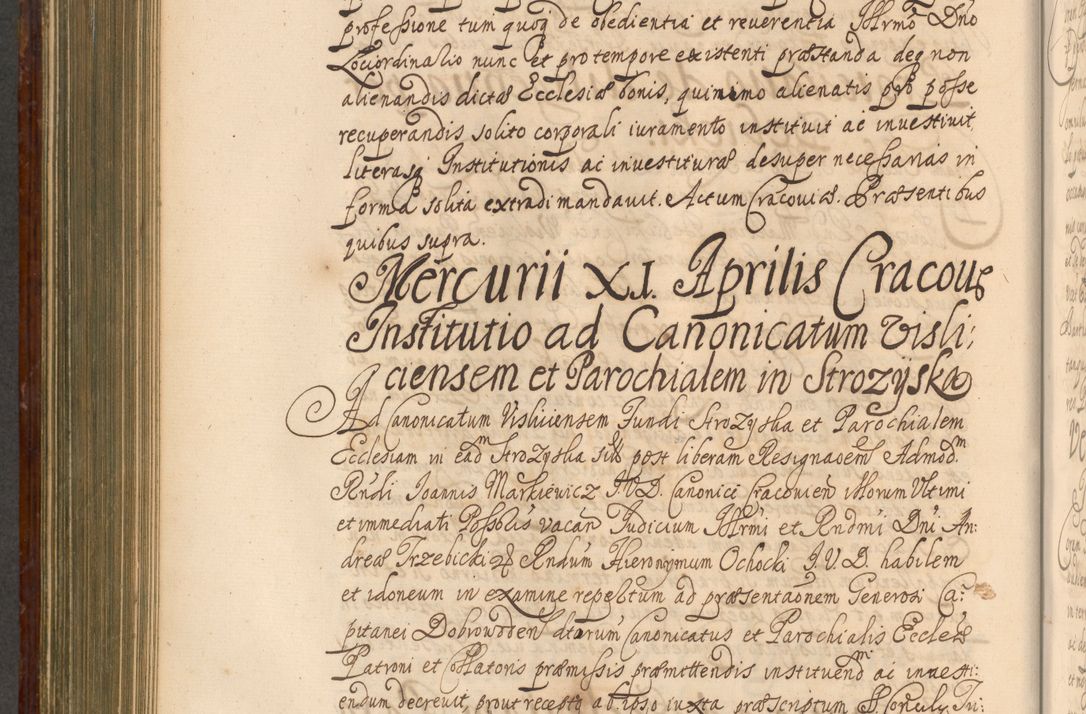 professione tum quoq de obedientia et reverentia Illrmo Dno
Lociordinario nunc et pro tempore existenti præstanda deq non
alienandis dictæ Ecclesiæ bonis, quinimo alienatis pro posse
recuperandis solito corporali iuramento instituit ac investivit,
literasq Institutionis ac investituræ desuper necessarias in
forma solita extradi mandavit. Actum Cracoviæ. Præsentibus
quibus supra.
Mercurii XI. Aprilis Cracouæ
Institutio ad Canonicatum Visli:
ciensem et Parochialem in Strozyska
Ad Canonicatum Visliciensem Fundi Strozyska et Parochialem
Ecclesiam in eadm Strozyska post liberam Resignaoem Admodm
Rndi Ioannis Markiewicz I.V.D. Canonici Cracovien illorum Vltimi
et immediati Possoris vacan Iudicium Illrmi et Rndmi Dni An:
dreæ Trzebicki Rndum Hieronymum Ochocki I.V.D. habilem
et idoneum in examine repertum ad præsentaonem Generosi Ca:
pitanei Dobrowoden dtorum Canonicatus et Parochialis Eccles
Patroni et Collatoris præmissis præmittendis instituendm ac investi:
endum decrevit, prout recepto ab ipso iuxta præscriptum S. Concily Tri: